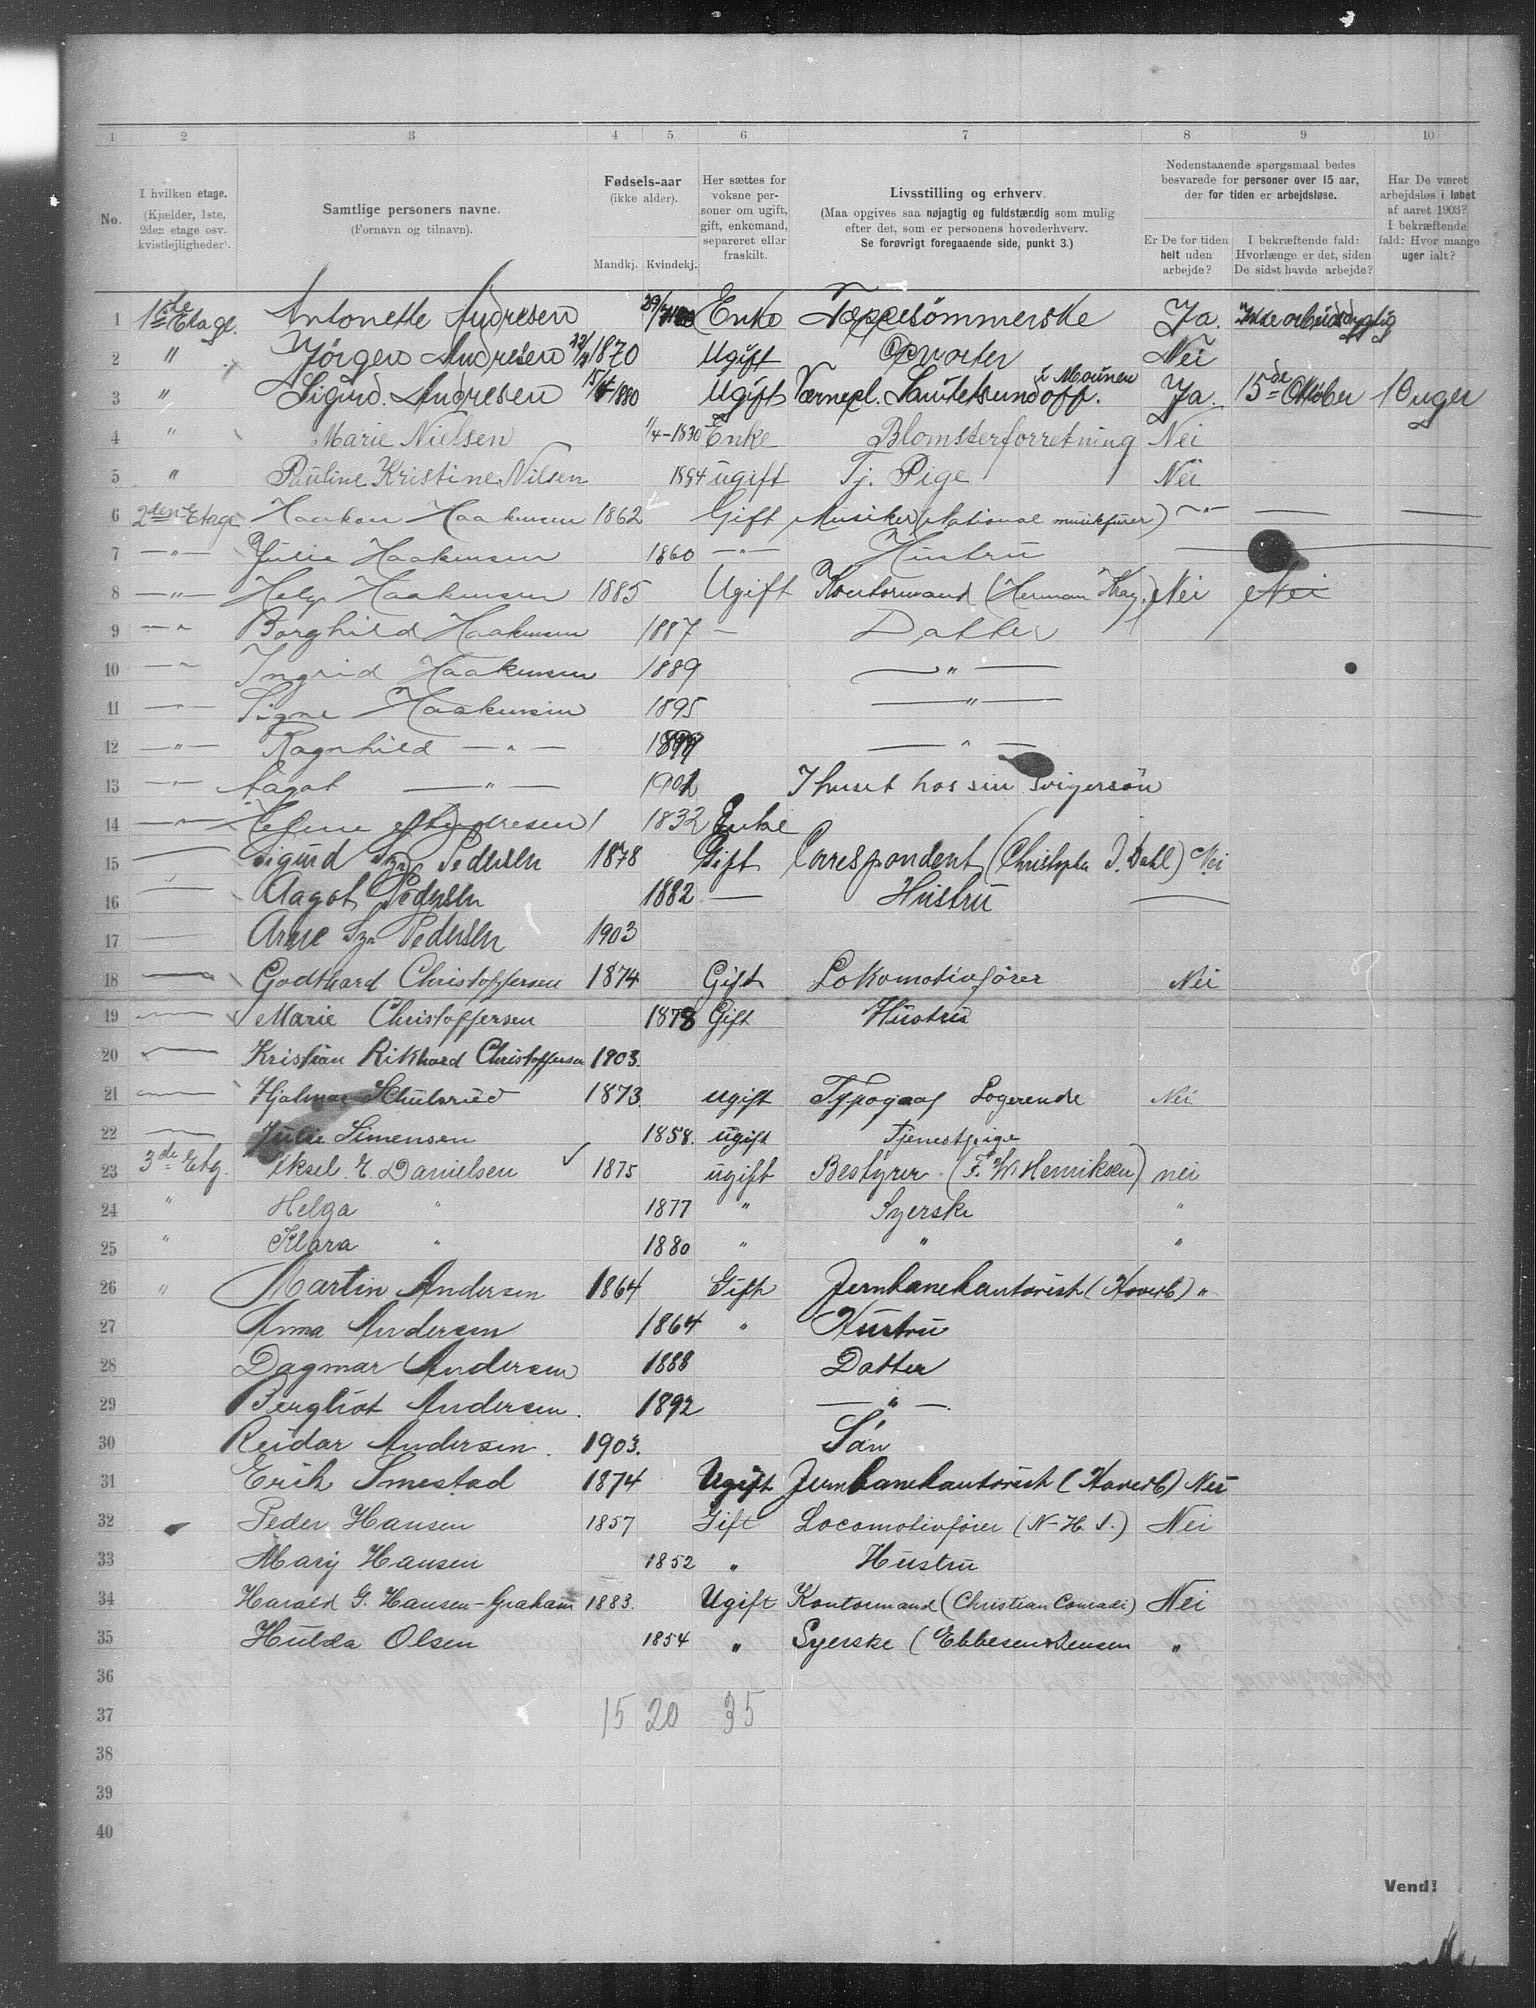 1 2 3 4 5 6 7 8 9 10
No.
I hvilken etage. (Kjælder, 1ste, 2den etage osv. kvistleiligheder).
Samtlige personers navne. (Fornavn og tilnavn).
Fødsels-aar (ikke alder).
Mandkj. Kvindekj.
Her sættes for voksne personer om ugift, gift, enkemand, separeret eller fraskilt.
Livsstilling og erhverv. (Maa opgives saa nøjagtig og fuldstændig som mulig efter det, som er personens hovederhverv. Se forøvrigt foregaaende side, punkt 3.)
Nedenstaaende spørgsmaal bedes besvarede for personer over 15 aar, der for tiden er arbejdsløse.
Er De for tiden helt uden arbejde?
I bekræftende fald: Hvorlænge er det, siden De sidst havde arbejde?
Har De været arbejdsløs i løbet af aaret 1903? I bekræftende fald: Hvor mange uger ialt?
1 1ste Etage. Antonette Andresen 29/7 Enke Tæppesömmerske Ja. Ikke arbeidsdygtig
2 " Jörgen Andresen 1870 Ugift Opvarter Nei
3 " Sigurd. Andresen 1880 Ugift Værnepl. Ja 15de Oktober 10 uger
4 " Marie Nielsen 1/4-1830 Enke Blomsterforretning Nei
5 " Pauline Kristine Nilsen 1894 ugift Tj. Pige Nei
6 2den Etage Haakon Haakensen 1862 Gift Musiker (National musikfürer) — " — — —
7 — " — Julie Haakensen 1860 — " — Hustru
8 — " — Helge Haakensen 1885 Ugift Kontormand (Herman Krag) Nei Nei
9 — " Borghild Haakensen 1887 — Datter
10 — " Ingrid Haakensen 1889 — " —
11 — " — Signe Haakensen 1895 — " —
12 — " — Ragnhild — " — — " —
13 — " — Aagot — " — 1901 I huset hos sin svigersön
14 — " — Andresen 1832 Enke
15 — Sigurd Szn Pedersen 1878 Gift Correspondent (Christopher J. Dahl) Nei
16 — Aagot Pedersen 1882 — Hustru —
17 — Arne Szn Pedersen 1903
18 — Godthard Christoffersen 1874 Gift Lokomotivförer Nei
19 — Marie Christoffersen 1878 Gift Hustru
20 — Kristian Rikhard Christoffersen 1903.
21 — Hjalmar Schulsrud 1873 ugift Typograf Logerende Nei
22 — Julie Simensen 1858. ugift Tjenestpige
23 3de Etg. Aksel. E. Danielsen 1875 ugift Bestyrer (F. W. Henriksen) nei
24 " Helga " 1877 " Syerske "
25 " Klara " 1880 " " "
26 " Martin Andersen 1864 Gift Jernbanekontorist (Hovedb) "
27 Anna Andersen 1864 " Hustru
28 Dagmar Andersen 1888 Datter
29 Bergliot Andersen. 1892 — " —
30 Reidar Andersen. 1903. Sön
31 Erik Smestad 1874 Ugift Jernbanekontorist (Hovedb) Nei
32 Peder Hansen 1857 Gift Locomotivförer (N-H. J.) Nei
33 Mary Hansen 1852 " Hustru
34 Harald G. Hansen-Graham 1883. Ugift Kontormand (Christian Conradi) Nei
35 Hulda Olsen 1854 " Syerske (Ebbesen & Jensen "
36
37 15 20 35
38
39
40
Vend!